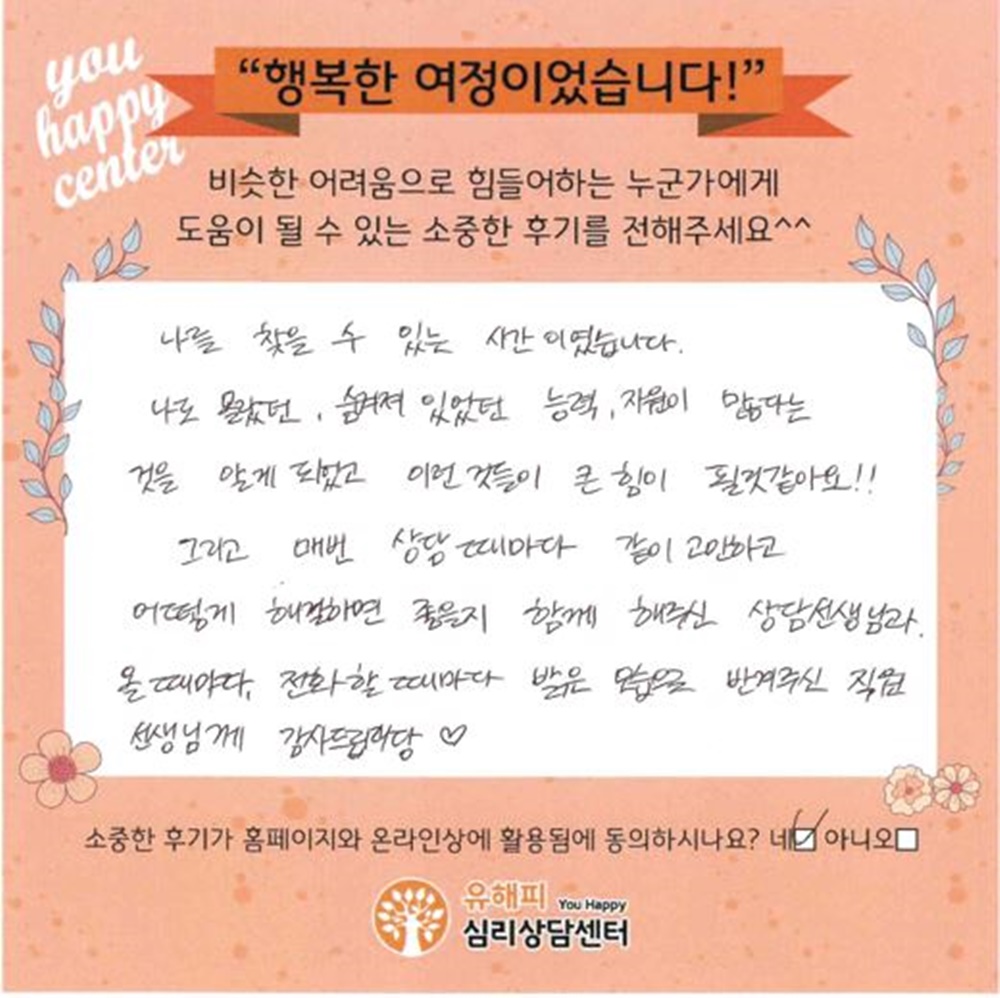 you
happy
center
“행복한 여정이었습니다!”
비슷한 어려움으로 힘들어하는 누군가에게
도움이 될 수 있는 소중한 후기를 전해주세요^^
나를 찾을 수 있는 시간이였습니다.
나도 몰랐던, 숨겨져 있었던 능력, 자원이 많다는
것을 알게 되었고 이런 것들이 큰 힘이 될것같아요!!
그리고 매번 상담 때마다 같이 고민하고
어떻게 해결하면 좋을지 함께 해주신 상담선생님과.
올 때마다, 전화할 때마다 밝은 모습으로 반겨주신 직원
선생님께 감사드립니당 ♡
소중한 후기가 홈페이지와 온라인상에 활용됨에 동의하시나요? 네☑ 아니오☐
유해피 You Happy
심리상담센터